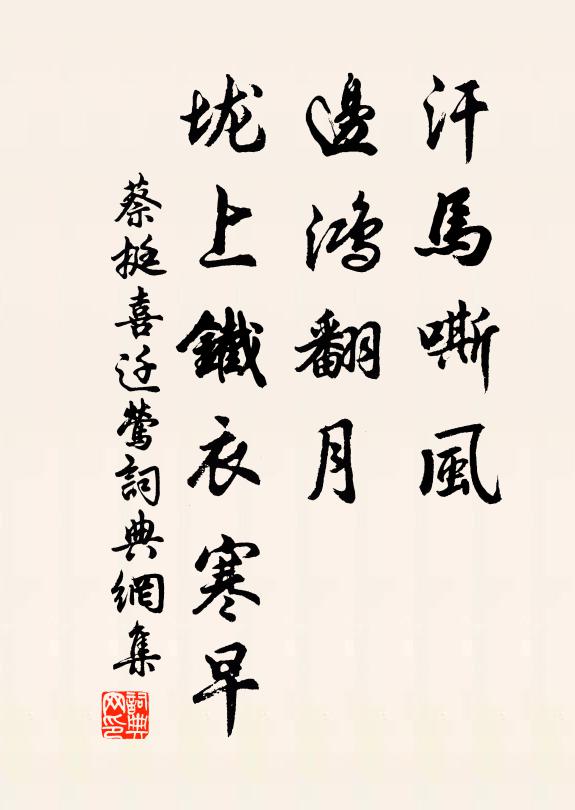 汗馬嘶風
邊鴻翻月
垅上鐵衣寒早
蔡挺喜迁鶯詞典網集
詞典网印